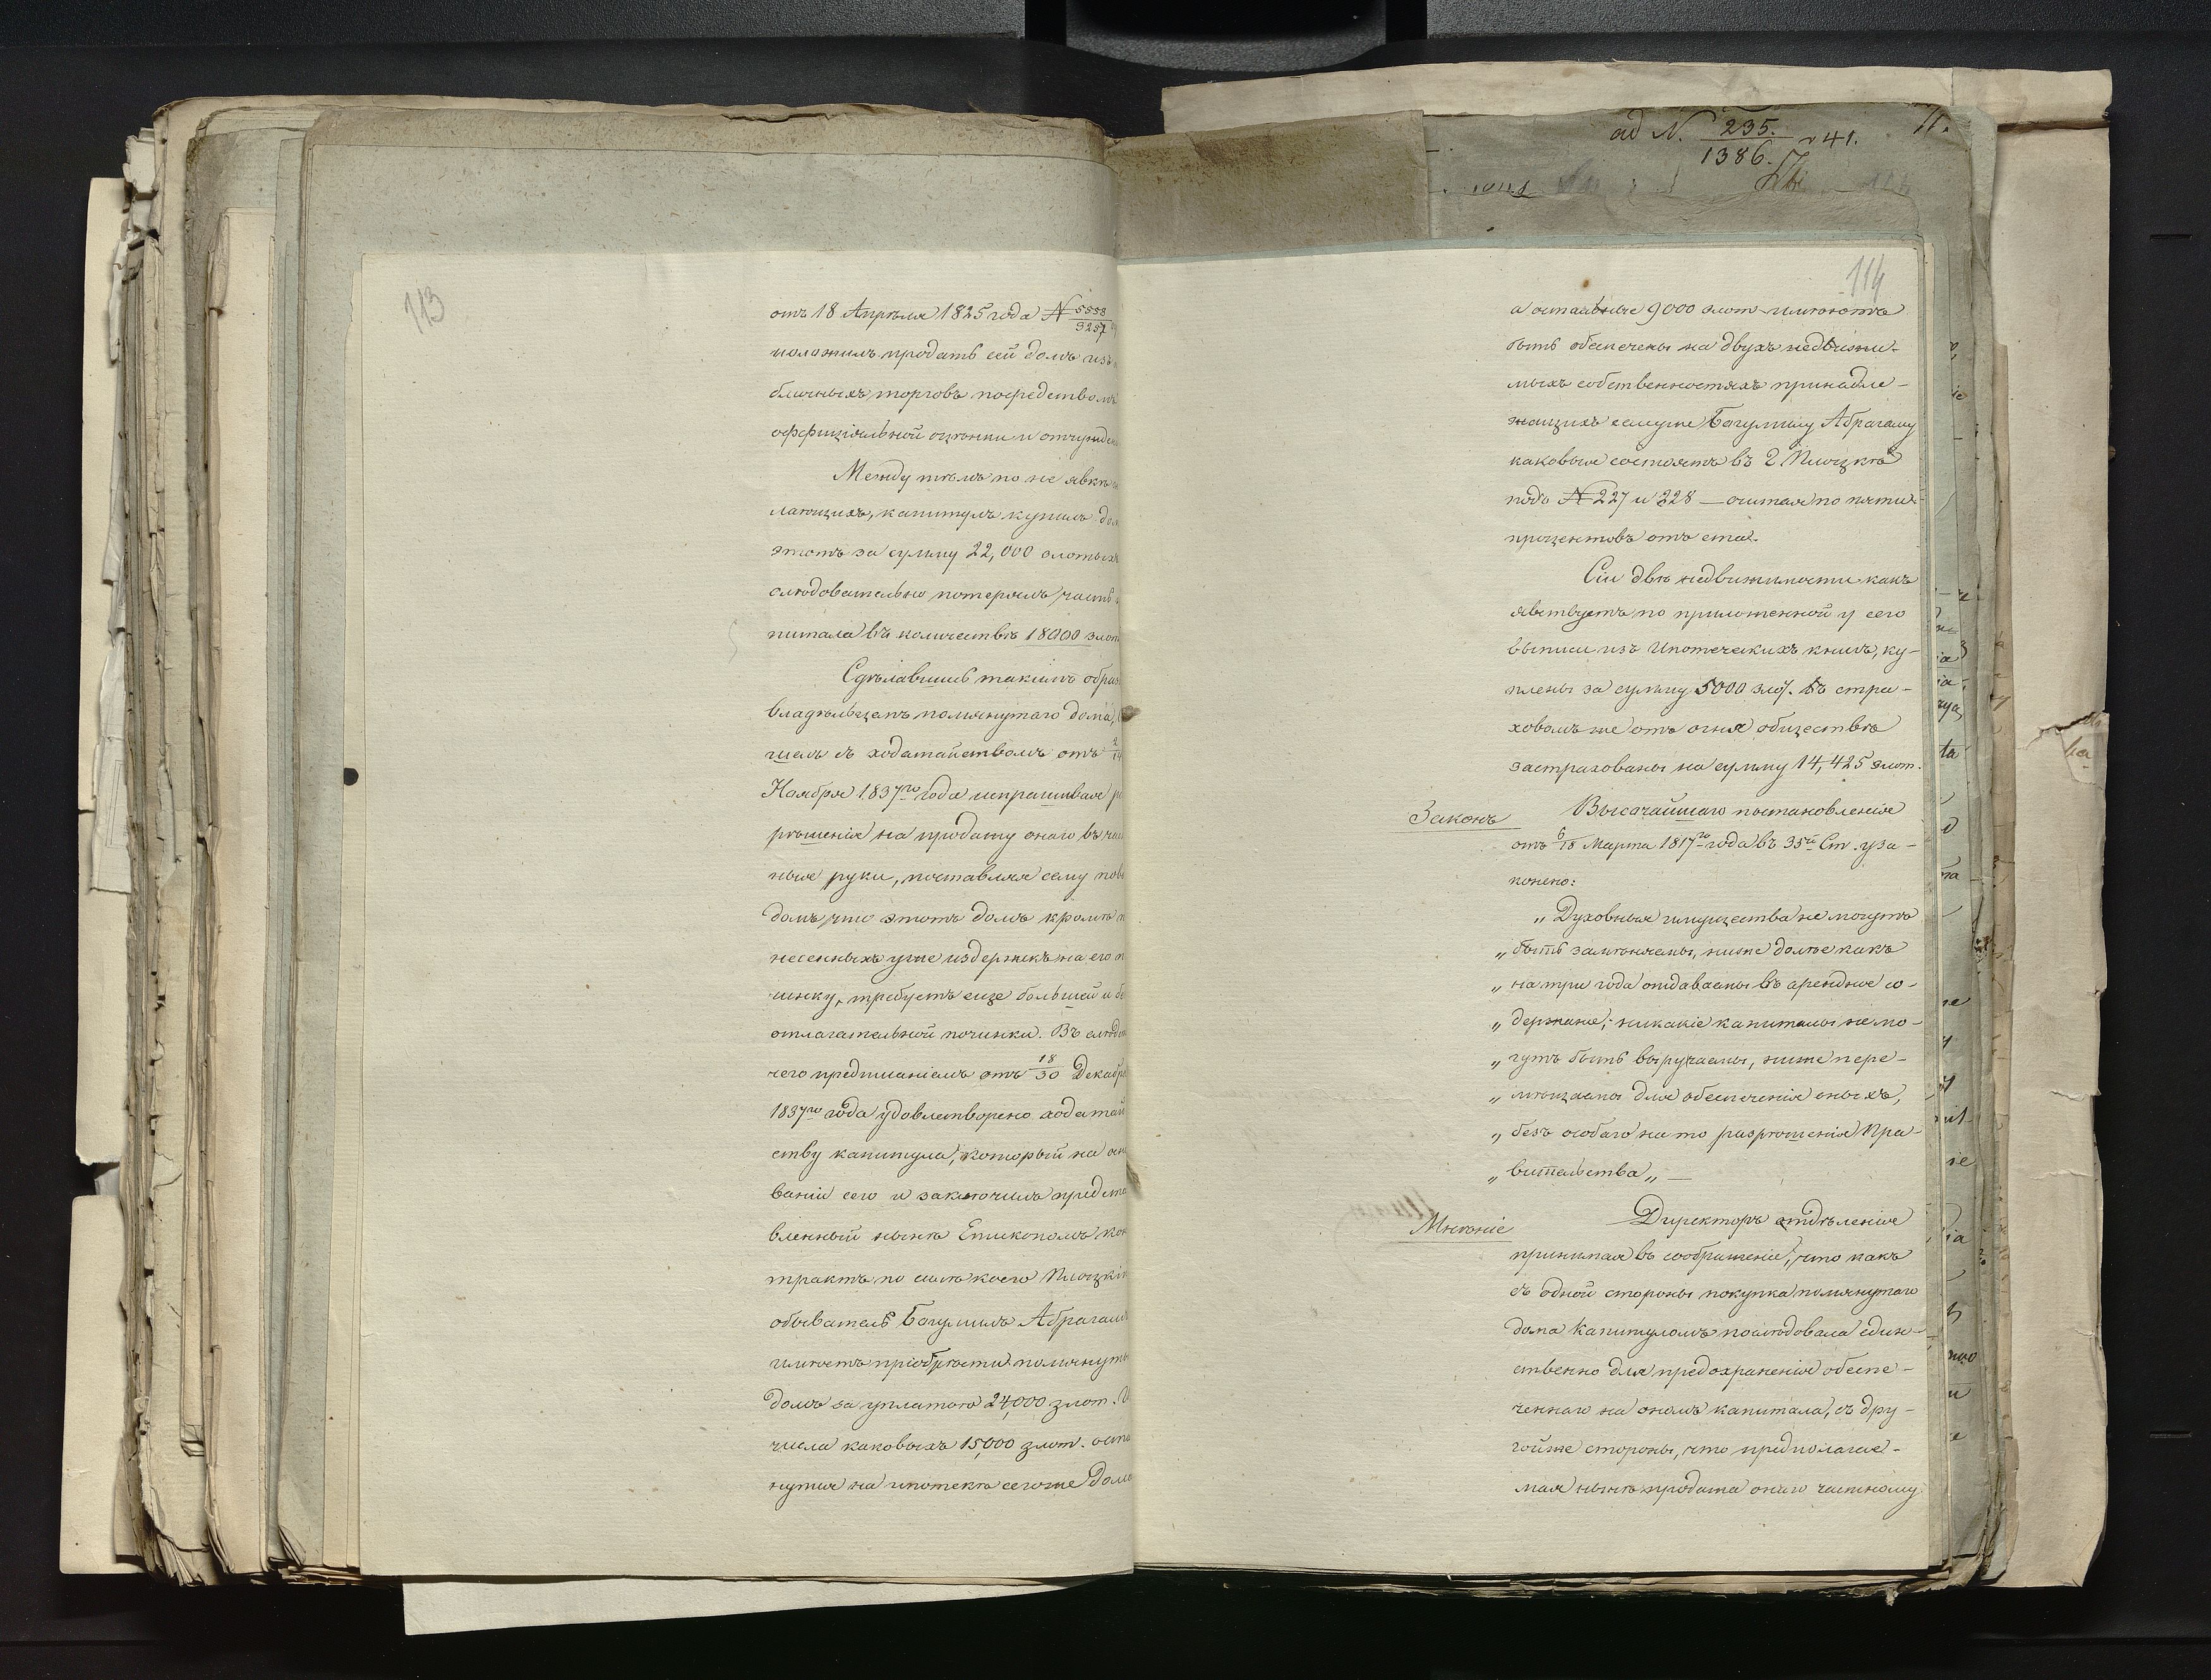 113
отъ 18 Апрѣля 1825 года № 5558/3257
положилъ продать сей домъ изъ
бличныхъ торговъ посредствомъ
оффиціальной оцѣнки и отчужден
Между тѣмъ по не явкѣ
лающихъ, капитулъ купилъ дом
этотъ за сумму 22,000 злотыхъ
слѣдовательно потерялъ часть
питала въ количествѣ 18000 злот
Сдѣлавшись такимъ образ
владѣльцемъ помянутаго дома,
шелъ съ ходатайствомъ отъ 2/14
Ноября 1837го года испрашивая р
рѣшенія на продажу онаго въ час
ныя руки, поставляя сему пово
домъ, что этотъ домъ кромѣ п
несенныхъ уже издержекъ на его п
чинку, требуетъ еще большей и бе
отлагательной починки. Въ слѣдс
чего предписаніемъ отъ 18/30 Декабр
1837го года удовлетворено ходатай
ству капитула, который на осн
ваніи сего и заключилъ предста
вленный нынѣ Епископомъ кон
трактъ по силѣ коего Плоцкій
обыватель Богумилъ Абрагам
имѣетъ пріобрѣсти помянуты
домъ за уплатою 24,000 злот. И
числа каковыхъ 15,000 злот. оста
нутся на ипотекѣ сегоже дома
ad N. 235./1386. 41.
114
а остальные 9000 злот. имѣютъ
быть обеспечены на двухъ недвижи-
мыхъ собственностяхъ принадле-
жащихъ емуже Богумилу Абрагаму
каковыя состоятъ въ г. Плоцкѣ
подъ № 227 и 228 — считая по пяти
процентовъ отъ ста.
Сіи двѣ недвижимости какъ
явствуетъ по приложенной у сего
выписи изъ Ипотечскихъ книгъ, ку-
плены за сумму 5000 злот. въ стра-
ховомъ же отъ огня обществѣ
застрахованы на сумму 14,425 злот.
Законъ
Высочайшаго постановленія
отъ 6/18 Марта 1817го года въ 35й Ст. уза-
конено:
„Духовныя имущества не могутъ
„быть замѣняемы, ниже долѣе какъ
„на три года отдаваемы въ арендное со-
„держаніе; никакіе капиталы не мо-
„гутъ быть выручаемы, ниже пере-
„мѣщаемы для обеспеченія оныхъ,
„безъ особаго на то разрѣшенія Пра-
„вительства„ —
Мнѣніе
Директоръ отдѣленія
принимая въ соображеніе, что какъ
съ одной стороны покупка помянутаго
дома Капитуломъ послѣдовала един-
ственно для предохраненія обеспе-
ченнаго на ономъ капитала, съ дру-
гойже стороны, что предполагае-
мая нынѣ продажа онаго частному